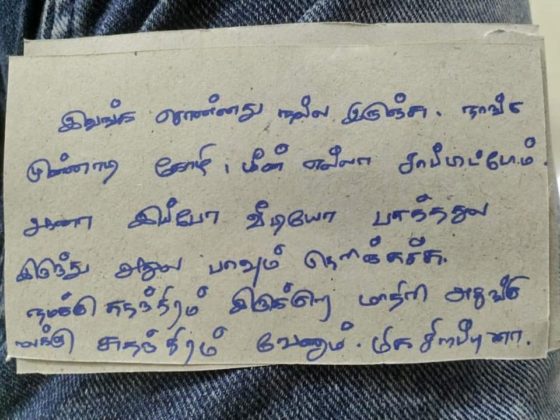 இவங்க சொன்னது நல்ல இருந்சு. நாங்க
முன்னாடி கோழி, மீன் எல்லா சாப்பிடுபோம்.
ஆனா இப்போ வீடியோ பாகத்துல
இருந்து அதுல பாவமும் தெரிக்சுக்சு.
நமக்கு சுதந்திரம் இருக்குற மாதிரி அதுங்க
ளுக்கு சுதந்திரம் வேணும். மிக சிறப்புனா.